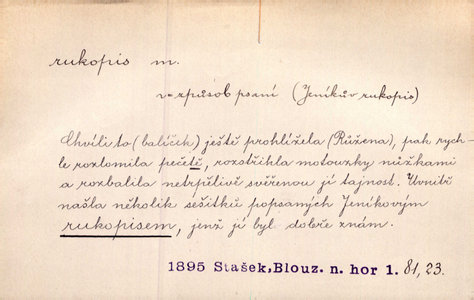 rukopis m.
v=způsob psaní (Jeníkův rukopis)
Chvíli to (balíček) ještě prohlížela (Růžena), pak rych-
le rozlomila pečetě, rozstřihla motouzky nůžkami
a rozbalila netrpělivě svěřenou jí tajnost. Uvnitř
našla několik sešitků popsaných Jeníkovým
rukopisem, jenž jí byl dobře znám.
1895 Stašek, Blouz. n. hor 1. 81, 23.